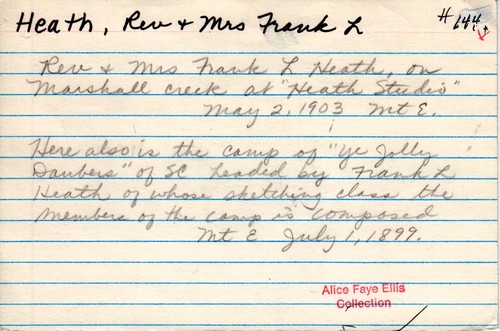 Heath, Rev + Mrs Frank L
# 144
Rev + Mrs Frank L Heath, on
Marshall creek at "Heath Studio"
May 2, 1903 Mt E.
Here also is the camp of "Ye Jolly
Daubers" of SC headed by Frank L
Heath of whose sketching class the
members of the camp is composed
Mt E July 1, 1899.
Alice Faye Ellis
Collection